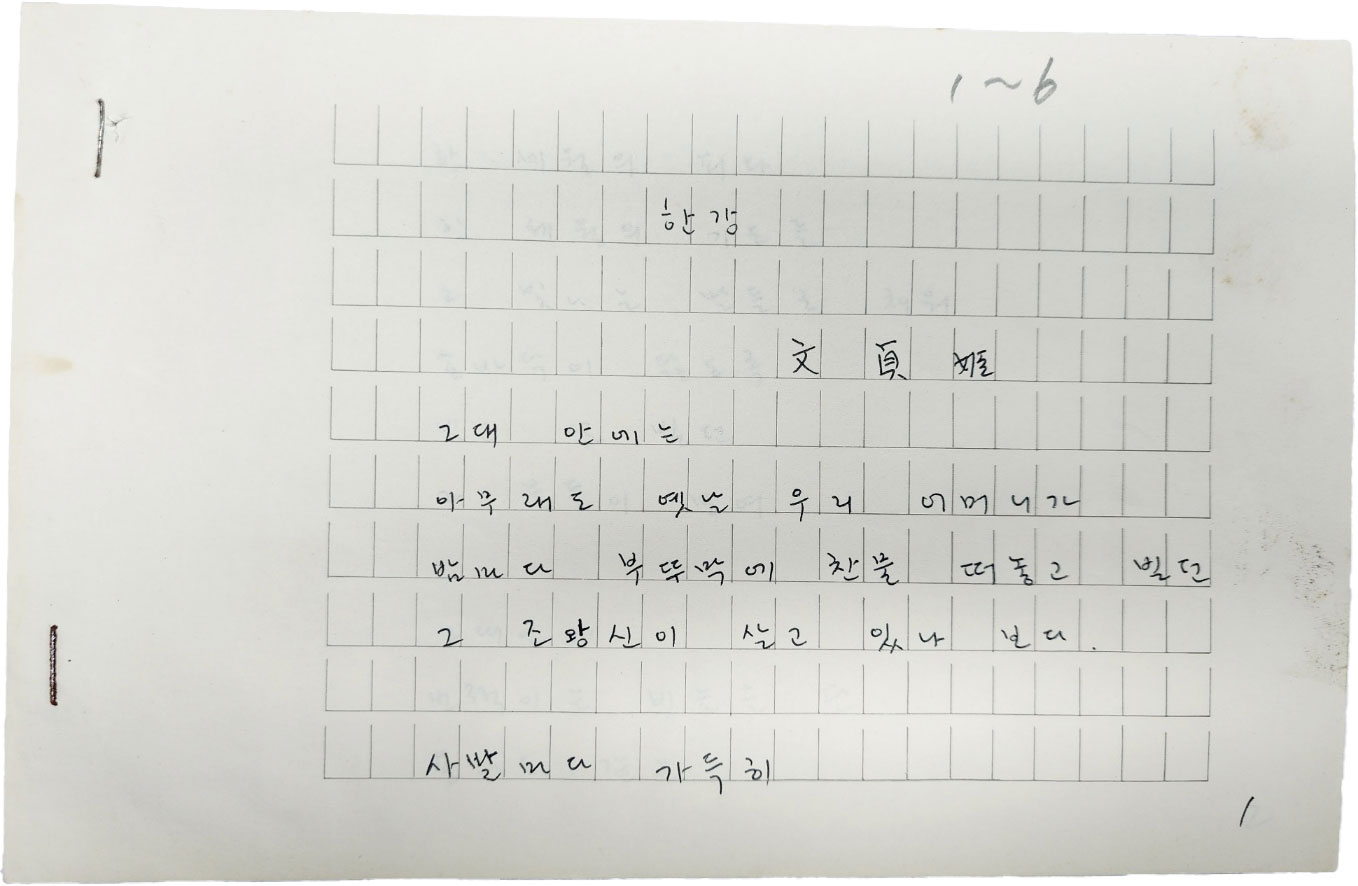 1~6
한강
文 貞 姬
그대 안에는
아무래도 옛날 우리 어머니가
밤마다 부뚜막에 찬물 떠놓고 빌던
그 조왕신이 살고 있나 보다.
사발마다 가득히
1